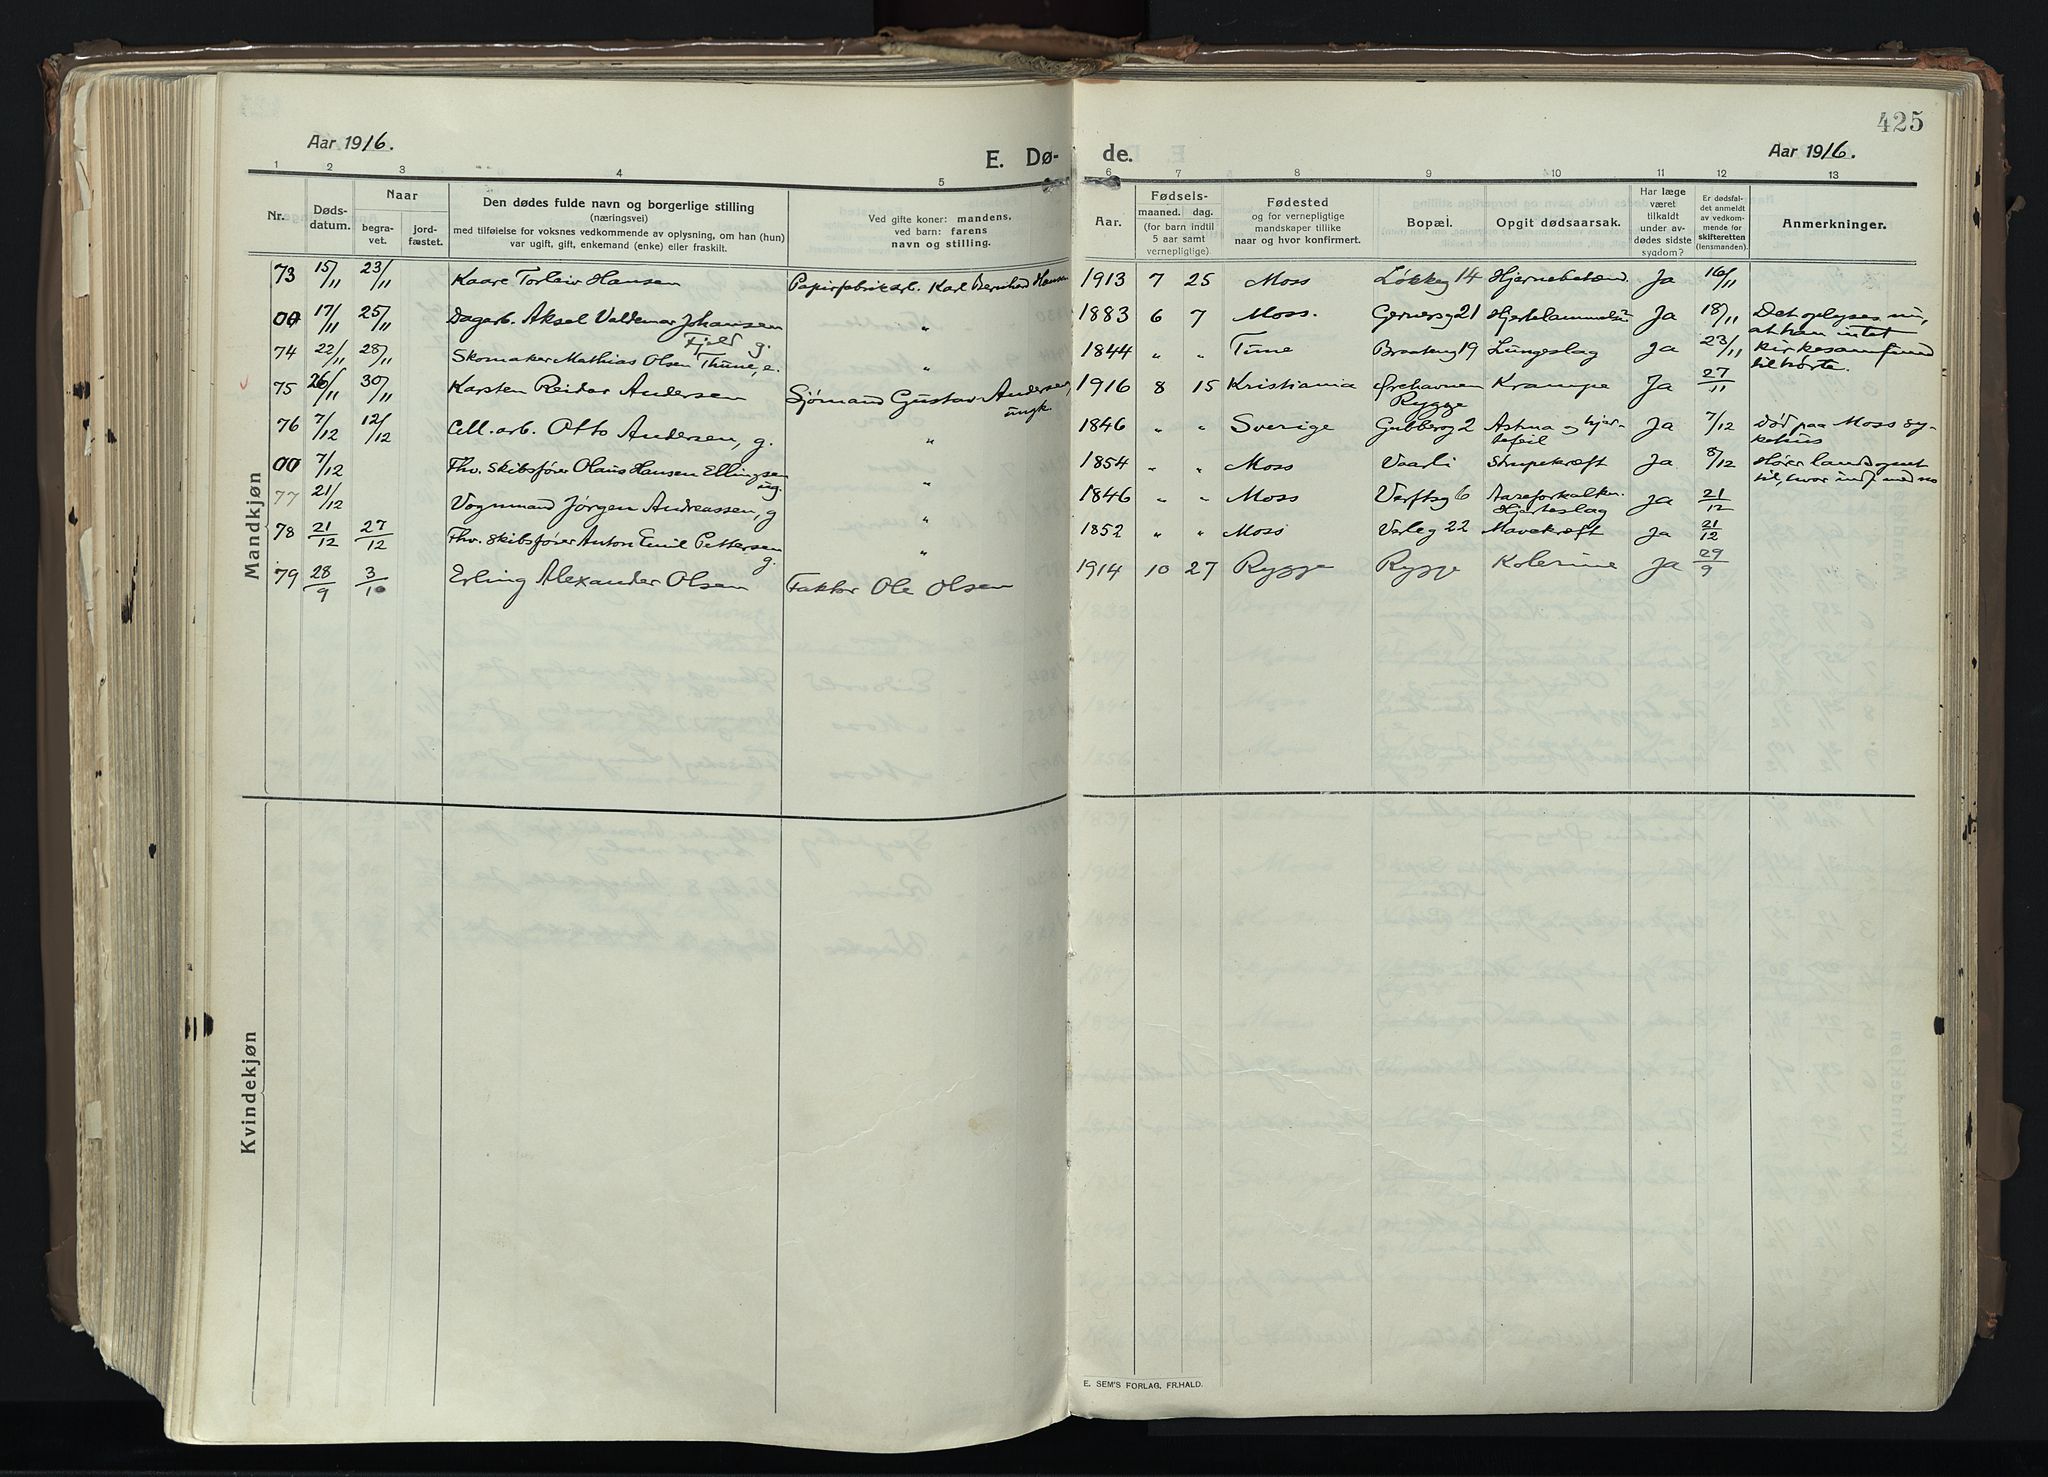 425
Aar 1916.
E. Dø-
de.
Aar 1916.
1 2 3 4 5 6 7 8 9 10 11 12 13
Nr.
Døds-
datum.
Naar
begra-
vet.
jord-
fæstet.
Den dødes fulde navn og borgerlige stilling
(næringsvei)
med tilføielse for voksnes vedkommende av oplysning, om han (hun)
var ugift, gift, enkemand (enke) eller fraskilt.
Ved gifte koner: mandens,
ved barn: farens
navn og stilling.
Aar.
Fødsels-
maaned. dag.
(for barn indtil
5 aar samt
vernepligtige).
Fødested
og for vernepligtige
mandskaper tillike
naar og hvor konfirmert.
Bopæl.
Opgit dødsaarsak.
Har læge
været
tilkaldt
under av-
dødes sidste
sygdom?
Er dødsfal-
det anmeldt
av vedkom-
mende for
skifteretten
(lensmanden).
Anmerkninger.
Mandkjøn
73 15/11 23/11 Kaare Torleiv Hansen Papirfabrikarb. Karl Bernhard Hansen 1913 7 25 Moss Løkkeg 14 Hjernebetænd. Ja 16/11
00 17/11 25/11 Dagarb. Aksel Valdemar Johansen " 1883 6 7 Moss. Gernersg 21 Ja 18/11 Det oplyses nu,
Fjeld g. at han intet
74 22/11 28/11 Skomaker Mathias Olsen Thune, e. " 1844 " " Tune Braateng 19 Lungeslag Ja 23/11 kirkesamfund
tilhørte.
75 26/11 30/11 Karsten Reidar Andersen Sjømand Gustav Andersen, 1916 8 15 Kristiania Ørehavnen Krampe Ja 27/11
ungk. Rygge
76 7/12 12/12 Cell. arb. Otto Andersen, g. " 1846 " " Sverige Gubberog 2 Astma og hjer- Ja 7/12 Død paa Moss sy-
tefeil kehus
00 7/12 Fhv. Skibsfører Olaus Hansen Ellingsen " 1854 " " Moss Vaarli Strupekræft Ja 8/12 Hører landsognet
ug. til, hvor indf. med no
77 21/12 Vognmand Jørgen Andreassen, g " 1846 " " Moss Verftsg 6 Aareforkalkn. Ja 21/12
Hjerteslag
78 21/12 27/12 Fhv. skibsfører Anton Emil Pettersen " 1852 " " Moss Valeg 22 Mavekræft Ja 21/12
g.
79 28/9 3/10 Erling Alexander Olsen Faktor Ole Olsen 1914 10 27 Rygge Rygge Kolerine Ja 29/9
Kvindekjøn
E. SEM'S FORLAG, FR.HALD.